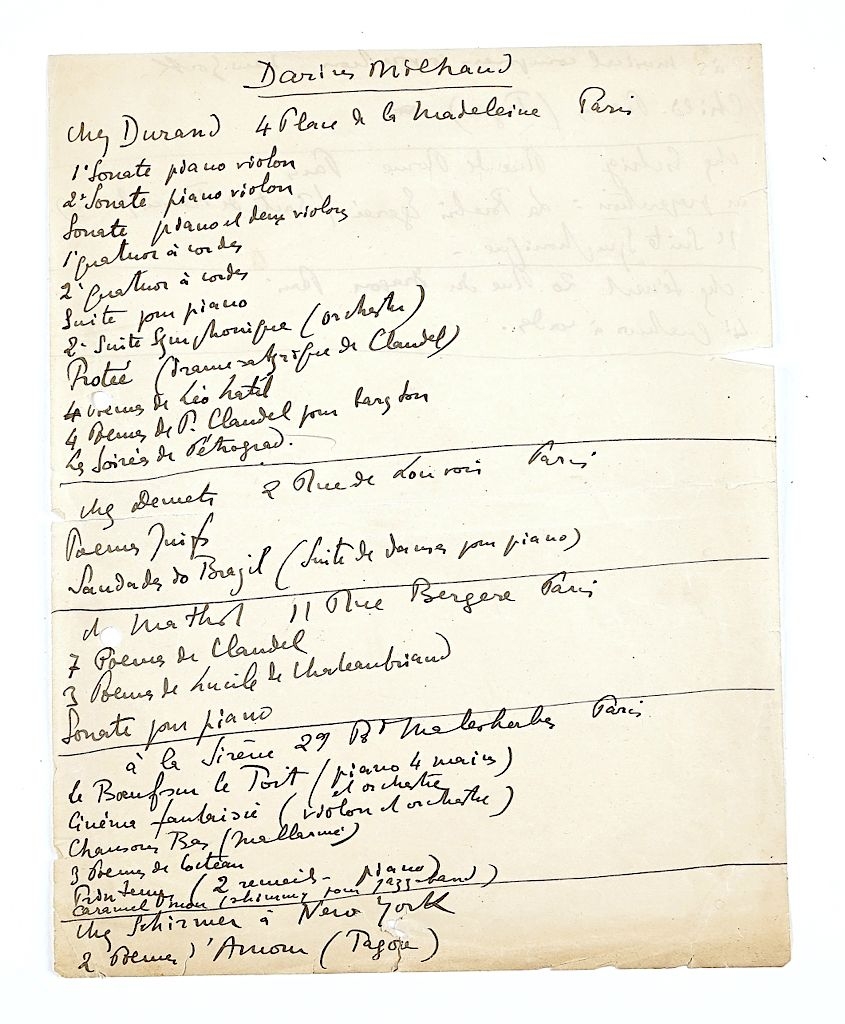 Darius Milhaud
chez Durand 4 Place de la Madeleine Paris
1e Sonate piano violon
2e Sonate piano violon
Sonate piano et deux violons
1e quatuor à cordes
2e quatuor à cordes
Suite pour piano
2e Suite Symphonique (orchestre)
Protée (drame satyrique de Claudel)
4 Poemes de Léo Latil
4 Poemes de P. Claudel pour baryton
Les Soirées de Pétrograd.
chez Demets 2 Rue de Louvois Paris
Poemes Juifs
Saudades do Brazil (Suite de danses pour piano)
ch Mathot 11 Rue Bergere Paris
7 Poemes de Claudel
3 Poemes de Lucile de Chateaubriand
Sonate pour piano
à la Sirène 29 Bd Malesherbes Paris
Le Bœuf sur le Toit (piano 4 mains)
et orchestre
Cinéma fantaisie (violon et orchestre)
Chansons Bas (Mallarmé)
3 Poemes de Cocteau
Printemps (2 recueils - piano)
Caramel Mou (shimmy pour Jazz-band)
chez Schirmer à New York
2 Poemes d'Amour (Tagore)